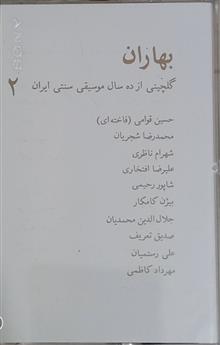 SONY
بهاران
گلچینی از ده سال موسیقی سنتی ایران ۲
حسین قوامی (فاخته ای)
محمدرضا شجریان
شهرام ناظری
علیرضا افتخاری
شاپور رحیمی
بیژن کامکار
جلال الدین محمدیان
صدیق تعریف
علی رستمیان
مهرداد کاظمی